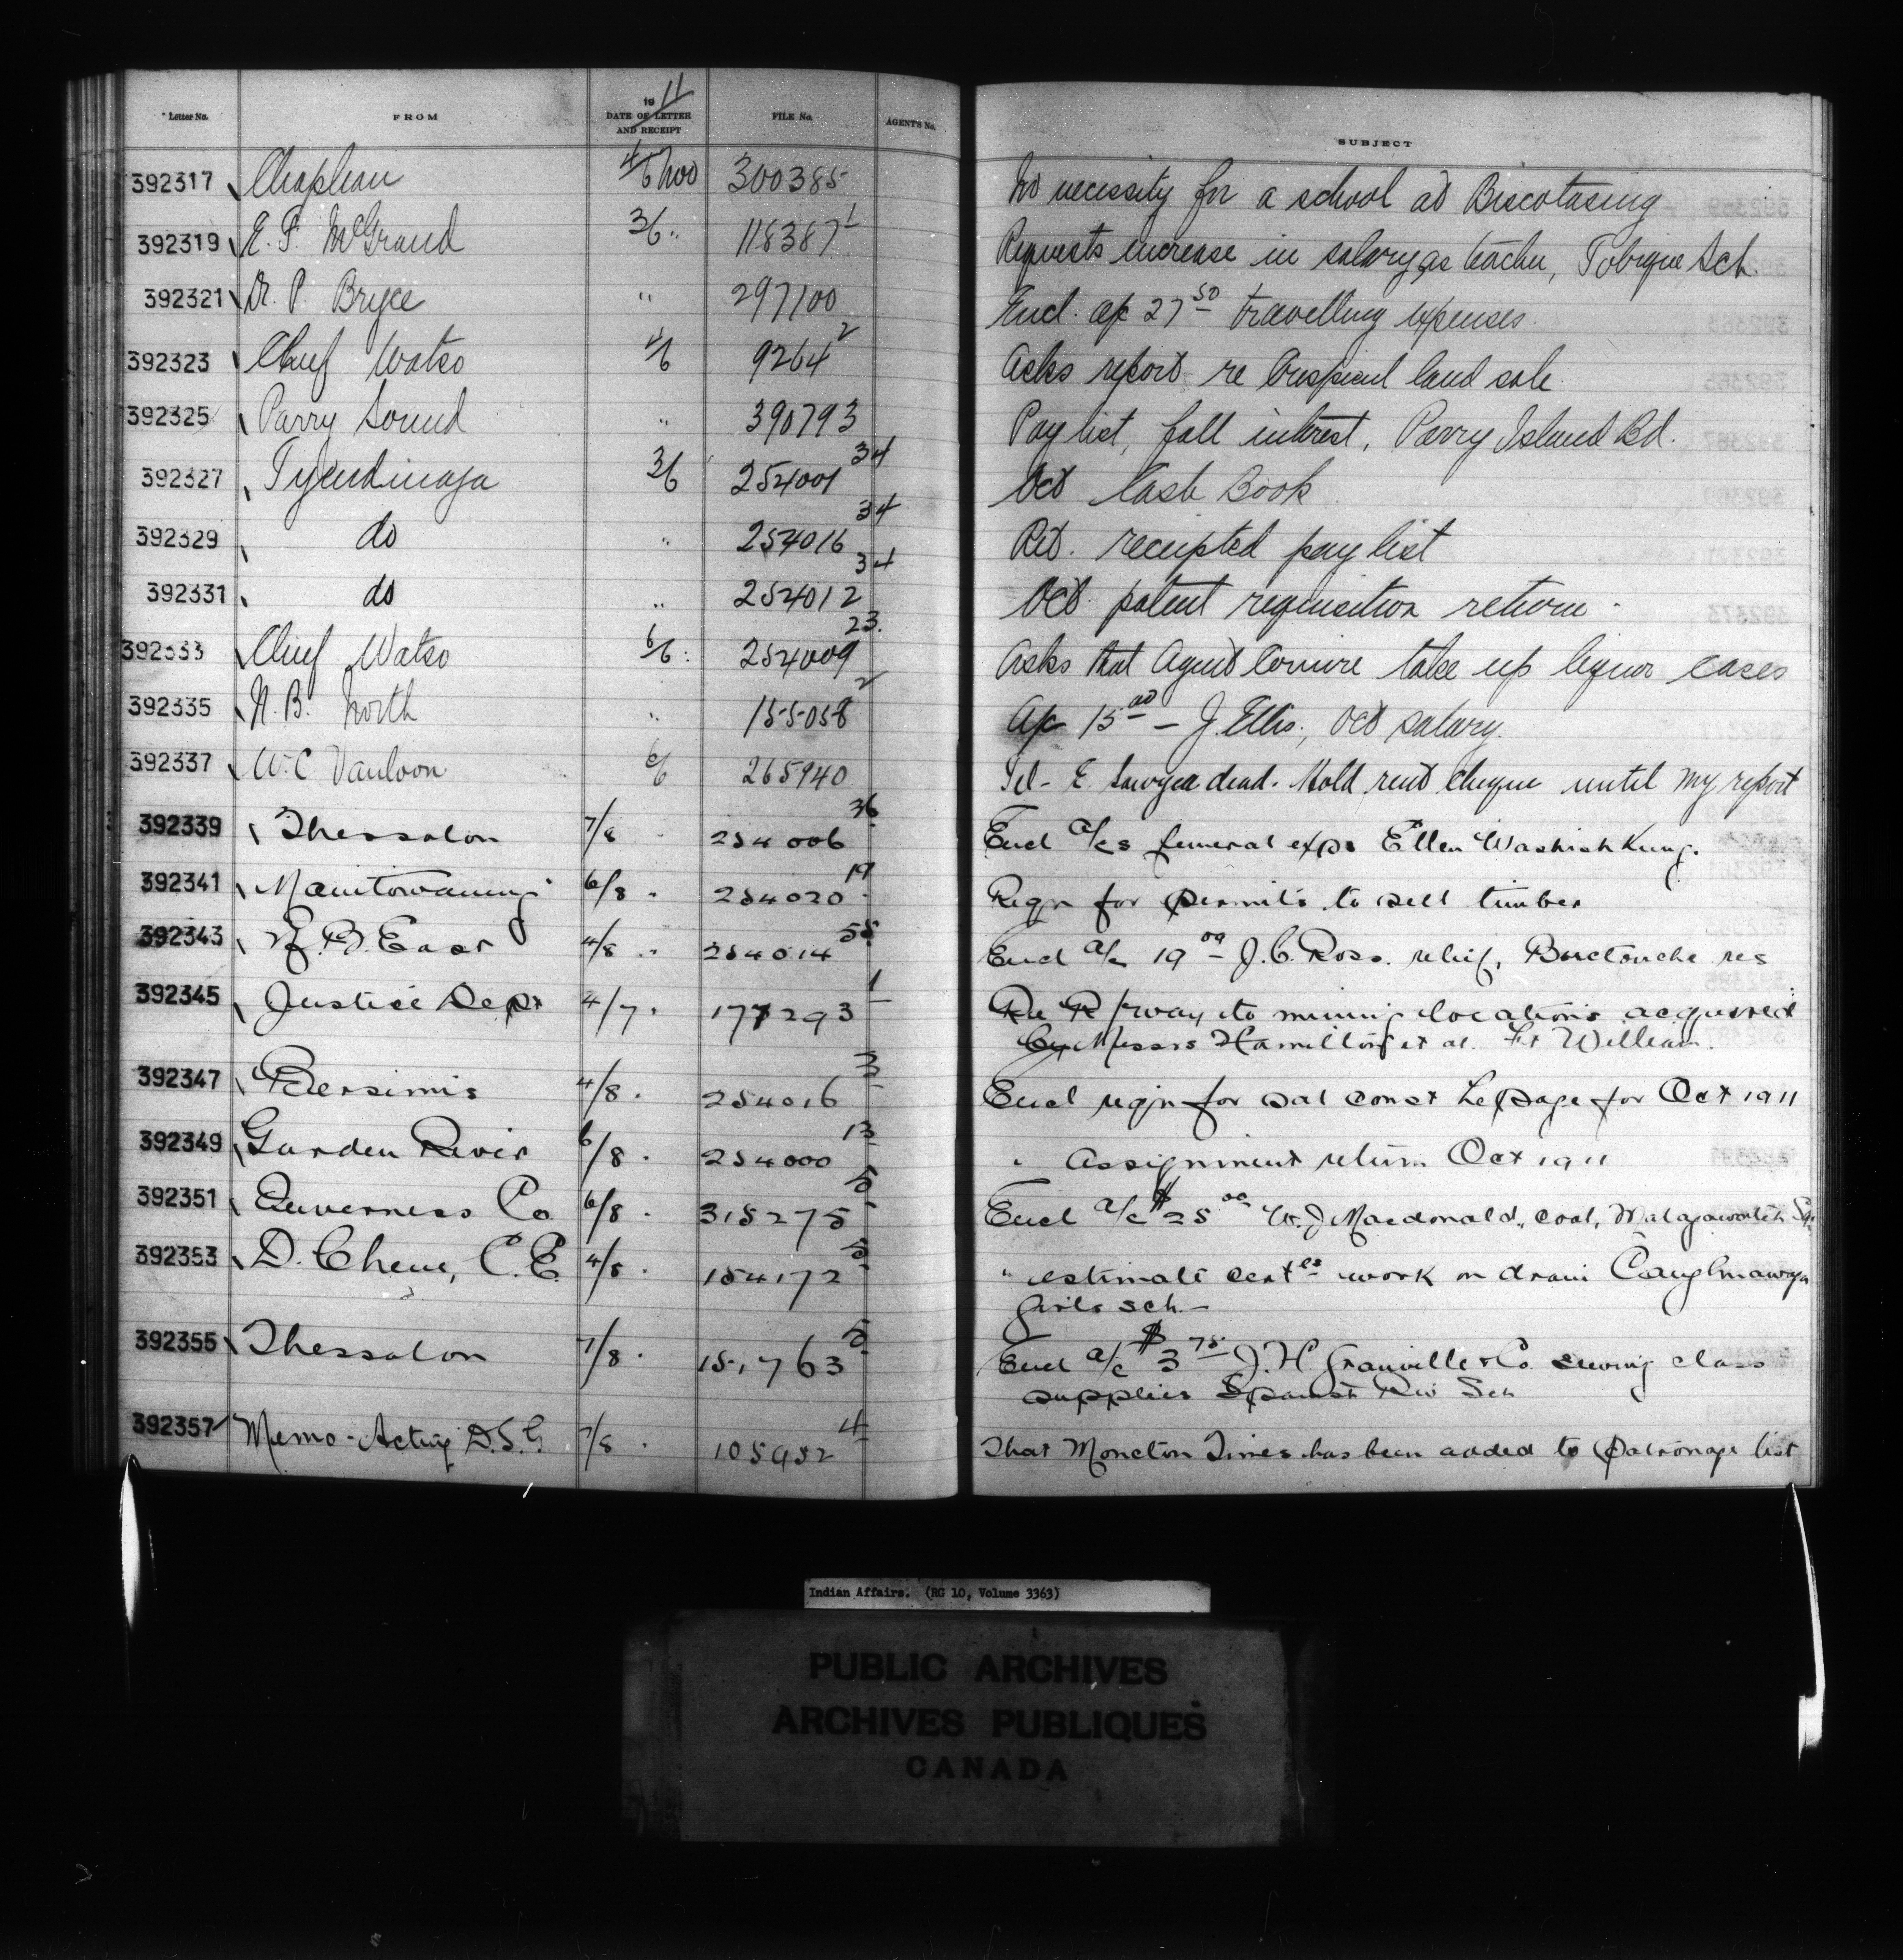 Letter No. FROM 1911 DATE OF LETTER AND RECEIPT FILE No. AGENT'S No. SUBJECT
392317 Chapleau 4/6 Nov 300385 No necessity for a school at Biscotasing
392319 E. F. McGrand 3/6 " 118387-1 Requests increase in salary as teacher, Tobique Sch.
392321 Dr. P. Bryce " 297100 Encl. a/c 27 50 travelling expenses.
392323 Chief Watso 4/6 9264-2 Asks report re land sale
392325 Parry Sound " 390793 Paylist, fall interest, Parry Island Bd.
392327 Tyendinaga 3/6 254001 34 Oct Cash Book
392329 do " 254016 34 Ret. receipted pay list
392331 do " 254012 34 Oct. patent requisition return.
392333 Chief Watso 6/6 " 254009 23 Asks that Agent Comire take up liquor cases
392335 N. B. North " 155058 2 A/c 15 00 - J. Ellis, Oct salary.
392337 W. C. Vanloon 6/6 265940 Tel - E. Sawyer dead. Hold rent cheque until my report
392339 Thessalon 7/8 254006 36 Encl a/cs funeral exps Ellen Washishkung.
392341 Manitowaning 6/8 " 254020 19 Reqn for permits to sell timber
392343 N. B. East 4/8 " 254014 55 Encl a/c 19 00 J. C. Ross. relief, Buctouche res
392345 Justice Dept 4/7 " 177293 1 Re R/way to mining locations acquired
by Messrs Hamilton et al. Ft William.
392347 Bersimis 4/8 " 254016 3 Encl reqn for sal const Lepage for Oct 1911
392349 Garden River 6/8 " 254000 13 " Assignment return Oct 1911
392351 Inverness Co 6/8 " 315275 5 Encl a/c $25 00 W. J. Macdonald, coal, Malagawatch Sch
392353 D. Chene, C. E. 4/8 " 154172 5 " estimate certes work on drain Caughnawaga
girls sch. -
392355 Thessalon 7/8 " 151763 5 Encl a/c $3 75 J. H. Granville & Co. sewing class
supplies Spanish Riv Sch
392357 Memo - Acting D.S.G. 7/8 " 105952 4 That Moncton Times has been added to patronage list
Indian Affairs. (RG 10, Volume 3363)
PUBLIC ARCHIVES
ARCHIVES PUBLIQUES
CANADA